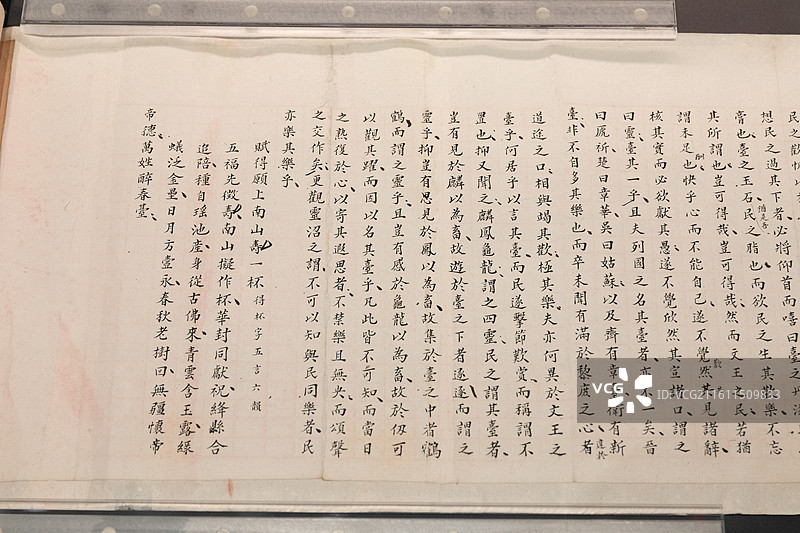 民之歡
想民之過其下者必將仰首而嘻曰臺之
膏也臺之玉石民之脂也而欲民之生其歡樂不忘
猶是吾
其所謂也豈可得哉豈可得哉然而文王之民若猶
謂未足也快乎心而不能自己遂不覺然其見諸辭
酬
核其實而必欲獻其愚遂不覺欣然其宣諸口謂之
曰靈臺其一乎且夫列國之名其臺者亦不一矣晉
曰虒祈楚曰章華吳曰姑蘇以及齊有章衛有新
達於
臺非不自多其樂也而卒未聞有滿於黎庶之心者
道途之口相與竭其歡極其樂夫亦何異於文王之
臺乎何居乎以言其臺而民遂擊節歎賞而稱謂不
置也抑又聞之麟鳳龜龍謂之四靈民之謂其臺者
豈有見於麟以為畜故遊於臺之下者逐逐而謂之
靈乎抑豈有思見於鳳以為畜故集於臺之中者鶴
鶴而謂之靈乎且豈有感於龜龍以為畜故於仞可
以觀其躍而因以名其臺乎凡此皆不可知而當日
之熟復於心以寄其遐思者不禁樂且無央而頌聲
之交作矣更觀靈沼之謂不可以知與民同樂者民
亦樂其樂乎
賦得願上南山壽一杯得杯字五言六韻
五福先徵壽南山擬作杯華封同獻祝絳縣合
追陪種自瑤池產身從古佛來青雲含玉露綠
蟻泛金罍日月方壺永春秋老樹回無疆懷帝
帝德萬姓醉春臺
VCG
VCG
VCG211611509833